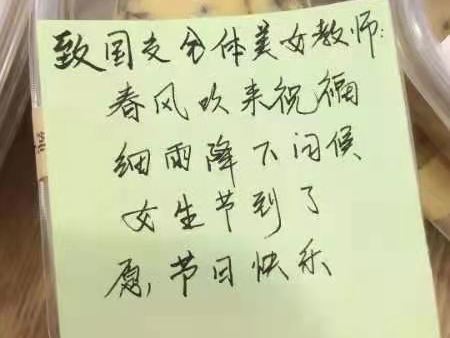 致国交分体美女教师:
春风吹来祝福
细雨降下问候
女生节到了
愿,节日快乐